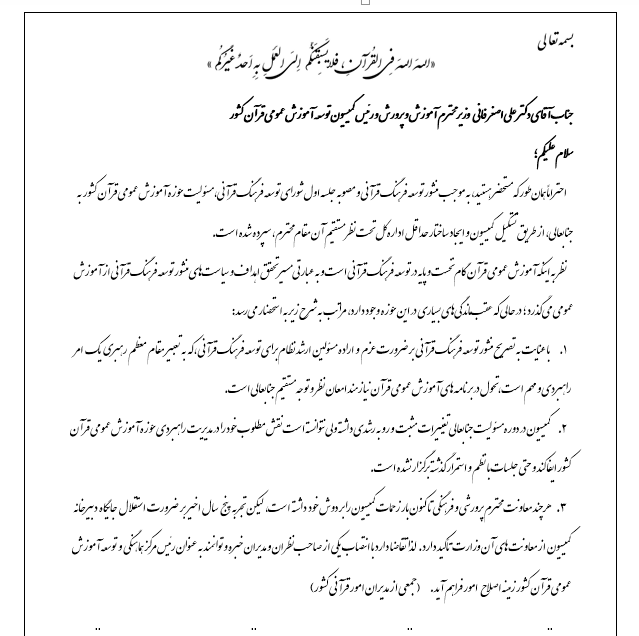 بسمه تعالی
«الله الله فی القُرآنِ، فلا یَسبِقَنَّکُم اِلیَ العَمَلِ بِهِ اَحَدٌ غَیرُکُم»
جناب آقای دکتر علی اصغر فانی وزیر محترم آموزش و پرورش و رئیس کمیسیون توسعه آموزش عمومی قرآن کشور
سلام علیکم؛
احتراماً همان طور که مستحضر هستید، به موجب منشور توسعه فرهنگ قرآنی و مصوبه جلسه اول شورای توسعه فرهنگ قرآنی، مسئولیت حوزه آموزش عمومی قرآن کشور به
جنابعالی، از طریق تشکیل کمیسیون و ایجاد ساختار حداقل اداره کل تحت نظر مستقیم آن مقام محترم، سپرده شده است.
نظر به اینکه آموزش عمومی قرآن گام نخست و پایه در توسعه فرهنگ قرآنی است و به عبارتی مسیر تحقق اهداف و سیاست های منشور توسعه فرهنگ قرآنی از آموزش
عمومی می گذرد؛ در حالی که عقب ماندگی های بسیاری در این حوزه وجود دارد، مراتب به شرح زیر به استحضار می رسد:
۱. با عنایت به تصریح منشور توسعه فرهنگ قرآنی بر ضرورت عزم و اراده مسئولین ارشد نظام برای توسعه فرهنگ قرآنی، که به تعبیر مقام معظم رهبری یک امر
راهبردی و مهم است، تحول در برنامه های آموزش عمومی قرآن نیازمند امعان نظر و توجه مستقیم جنابعالی است.
۲. کمیسیون در دوره مسئولیت جنابعالی تغییرات مثبت و رو به رشدی داشته ولی نتوانسته است نقش مطلوب خود را در مدیریت راهبردی حوزه آموزش عمومی قرآن
کشور ایفا کند و حتی جلسات با نظم و استمرار گذشته برگزار نشده است.
۳. هر چند معاونت محترم پرورشی و فرهنگی تاکنون بار زحمات کمیسیون را بر دوش خود داشته است، لیکن تجربه پنج سال اخیر بر ضرورت استقلال جایگاه دبیرخانه
کمیسیون از معاونت های آن وزارت تاکید دارد. لذا تقاضا دارد با انتصاب یکی از صاحب نظران و مدیران خبره و توانمند به عنوان رئیس مرکز هماهنگی و توسعه آموزش
عمومی قرآن کشور زمینه اصلاح امور فراهم آید. (جمعی از مدیران امور قرآنی کشور)